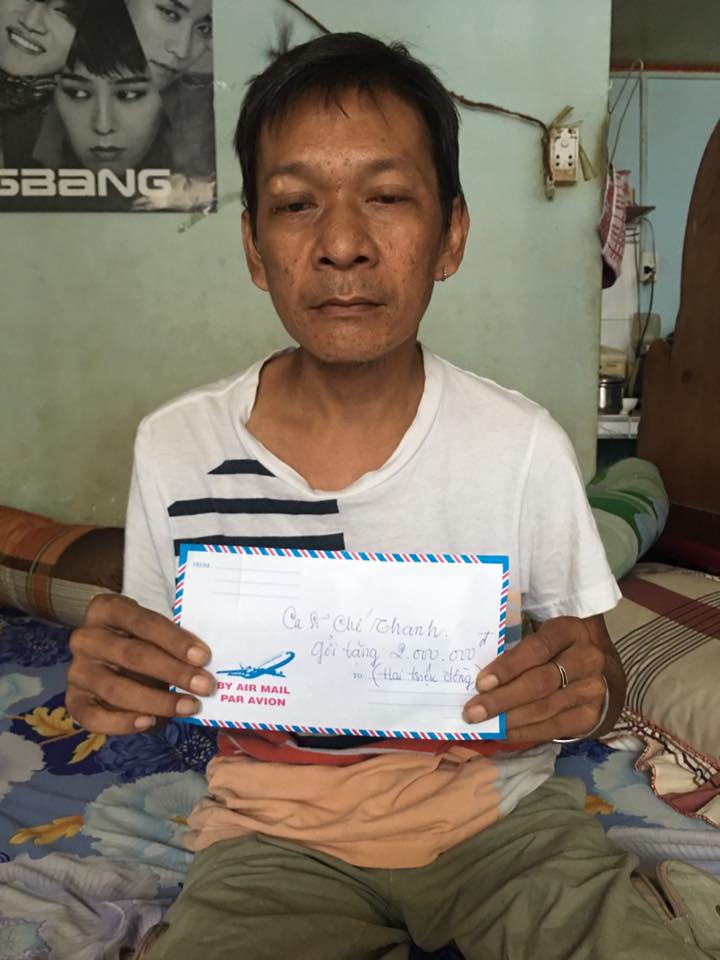 GBANG
FROM
Ca sĩ Chí Thanh.
gởi tặng 2.000.000đ
TO (Hai triệu đồng)
BY AIR MAIL
PAR AVION